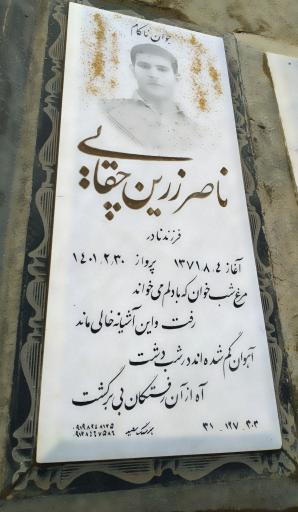 جوان ناکام
ناصر زرین چقایی
فرزند نادر
آغاز ۱۳۷۱.۸.۴ پرواز ۱۴۰۱.۲.۳۰
مرغ شب خوان که با دلم می خواند
رفت و این آشیانه خالی ماند
آهوان گم شده اند در شب دشت
آه از آن رفتگان بی برگشت
۳۱ ۱۹۷ ۳۰۳